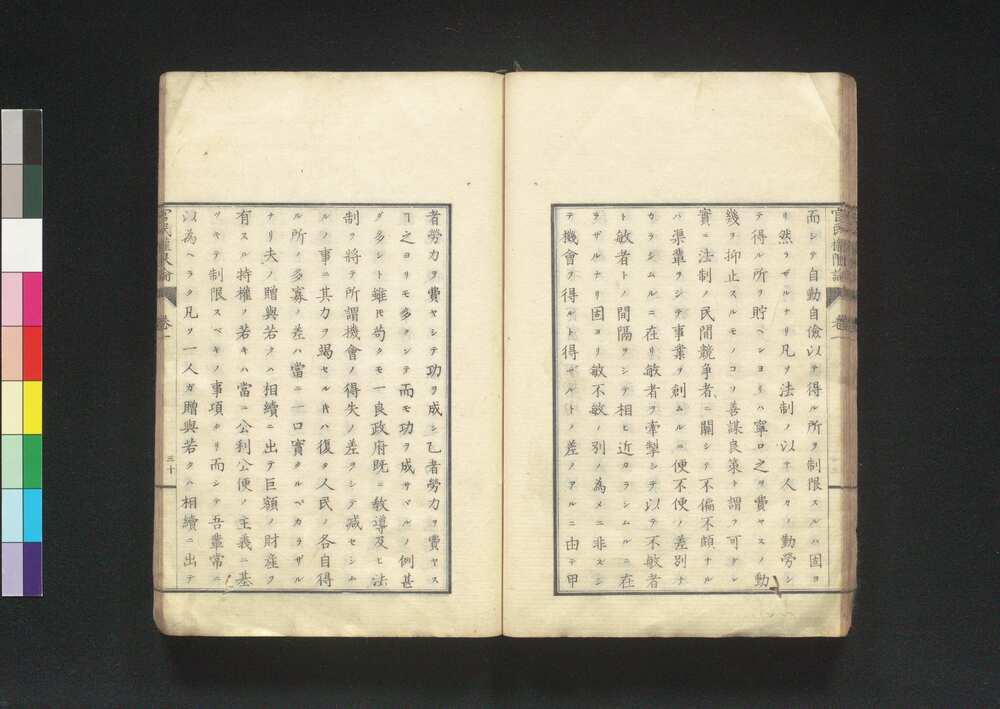 而シテ自動自儉以テ得ル所ヲ制限スルハ固ヨ
リ然ラザルナリ凡ソ法制ノ以テ人々ノ勤勞シ
テ得ル所ヲ貯ヘシヨリハ寧ロ之ヲ費ヤスノ動
幾ヲ抑止スルモノコソ善謀良策ト謂フ可ケレ
實ニ法制ノ民間競争者ニ關シテ不偏不頗ナル
ハ渠輩ヲシテ事業ヲ創ムルニ便不便ノ差別ナ
カラシムルニ在リ敏者ヲ牽掣シテ以テ不敏者
ト敏者トノ間隔ヲシテ相ヒ近カラシムルニ在
ラザルナリ固ヨリ敏不敏ノ別ノ為メニ非ズシ
テ機會ヲ得ルト得ザルトノ差ノアルニ由テ甲
者勞力ヲ費ヤシテ功ヲ成シ乙者勞力ヲ費ヤス
ヿ之ヨリモ多クシテ而モ功ヲ成サヾルノ例甚
ダ多シト雖𪜈苟クモ一良政府既ニ教導及ヒ法
制ヲ將テ所謂機會ノ得失ノ差ヲシテ减セシム
ルノ事ニ其力ヲ竭セル片ハ復タ人民ノ各自得
ル所ノ多寡ノ差ハ當ニ一口實タルベカラザル
ナリ夫ノ贈與若クハ相續ニ出テ巨額ノ財産ヲ
有スル持權ノ若キハ當ニ公利公便ノ主義ニ基
ツキテ制限スベキノ事項ナリ而シテ吾輩常ニ
以為ヘラク凡ソ一人ガ贈與若クハ相續ニ出テ
官民權限論
卷一
三十